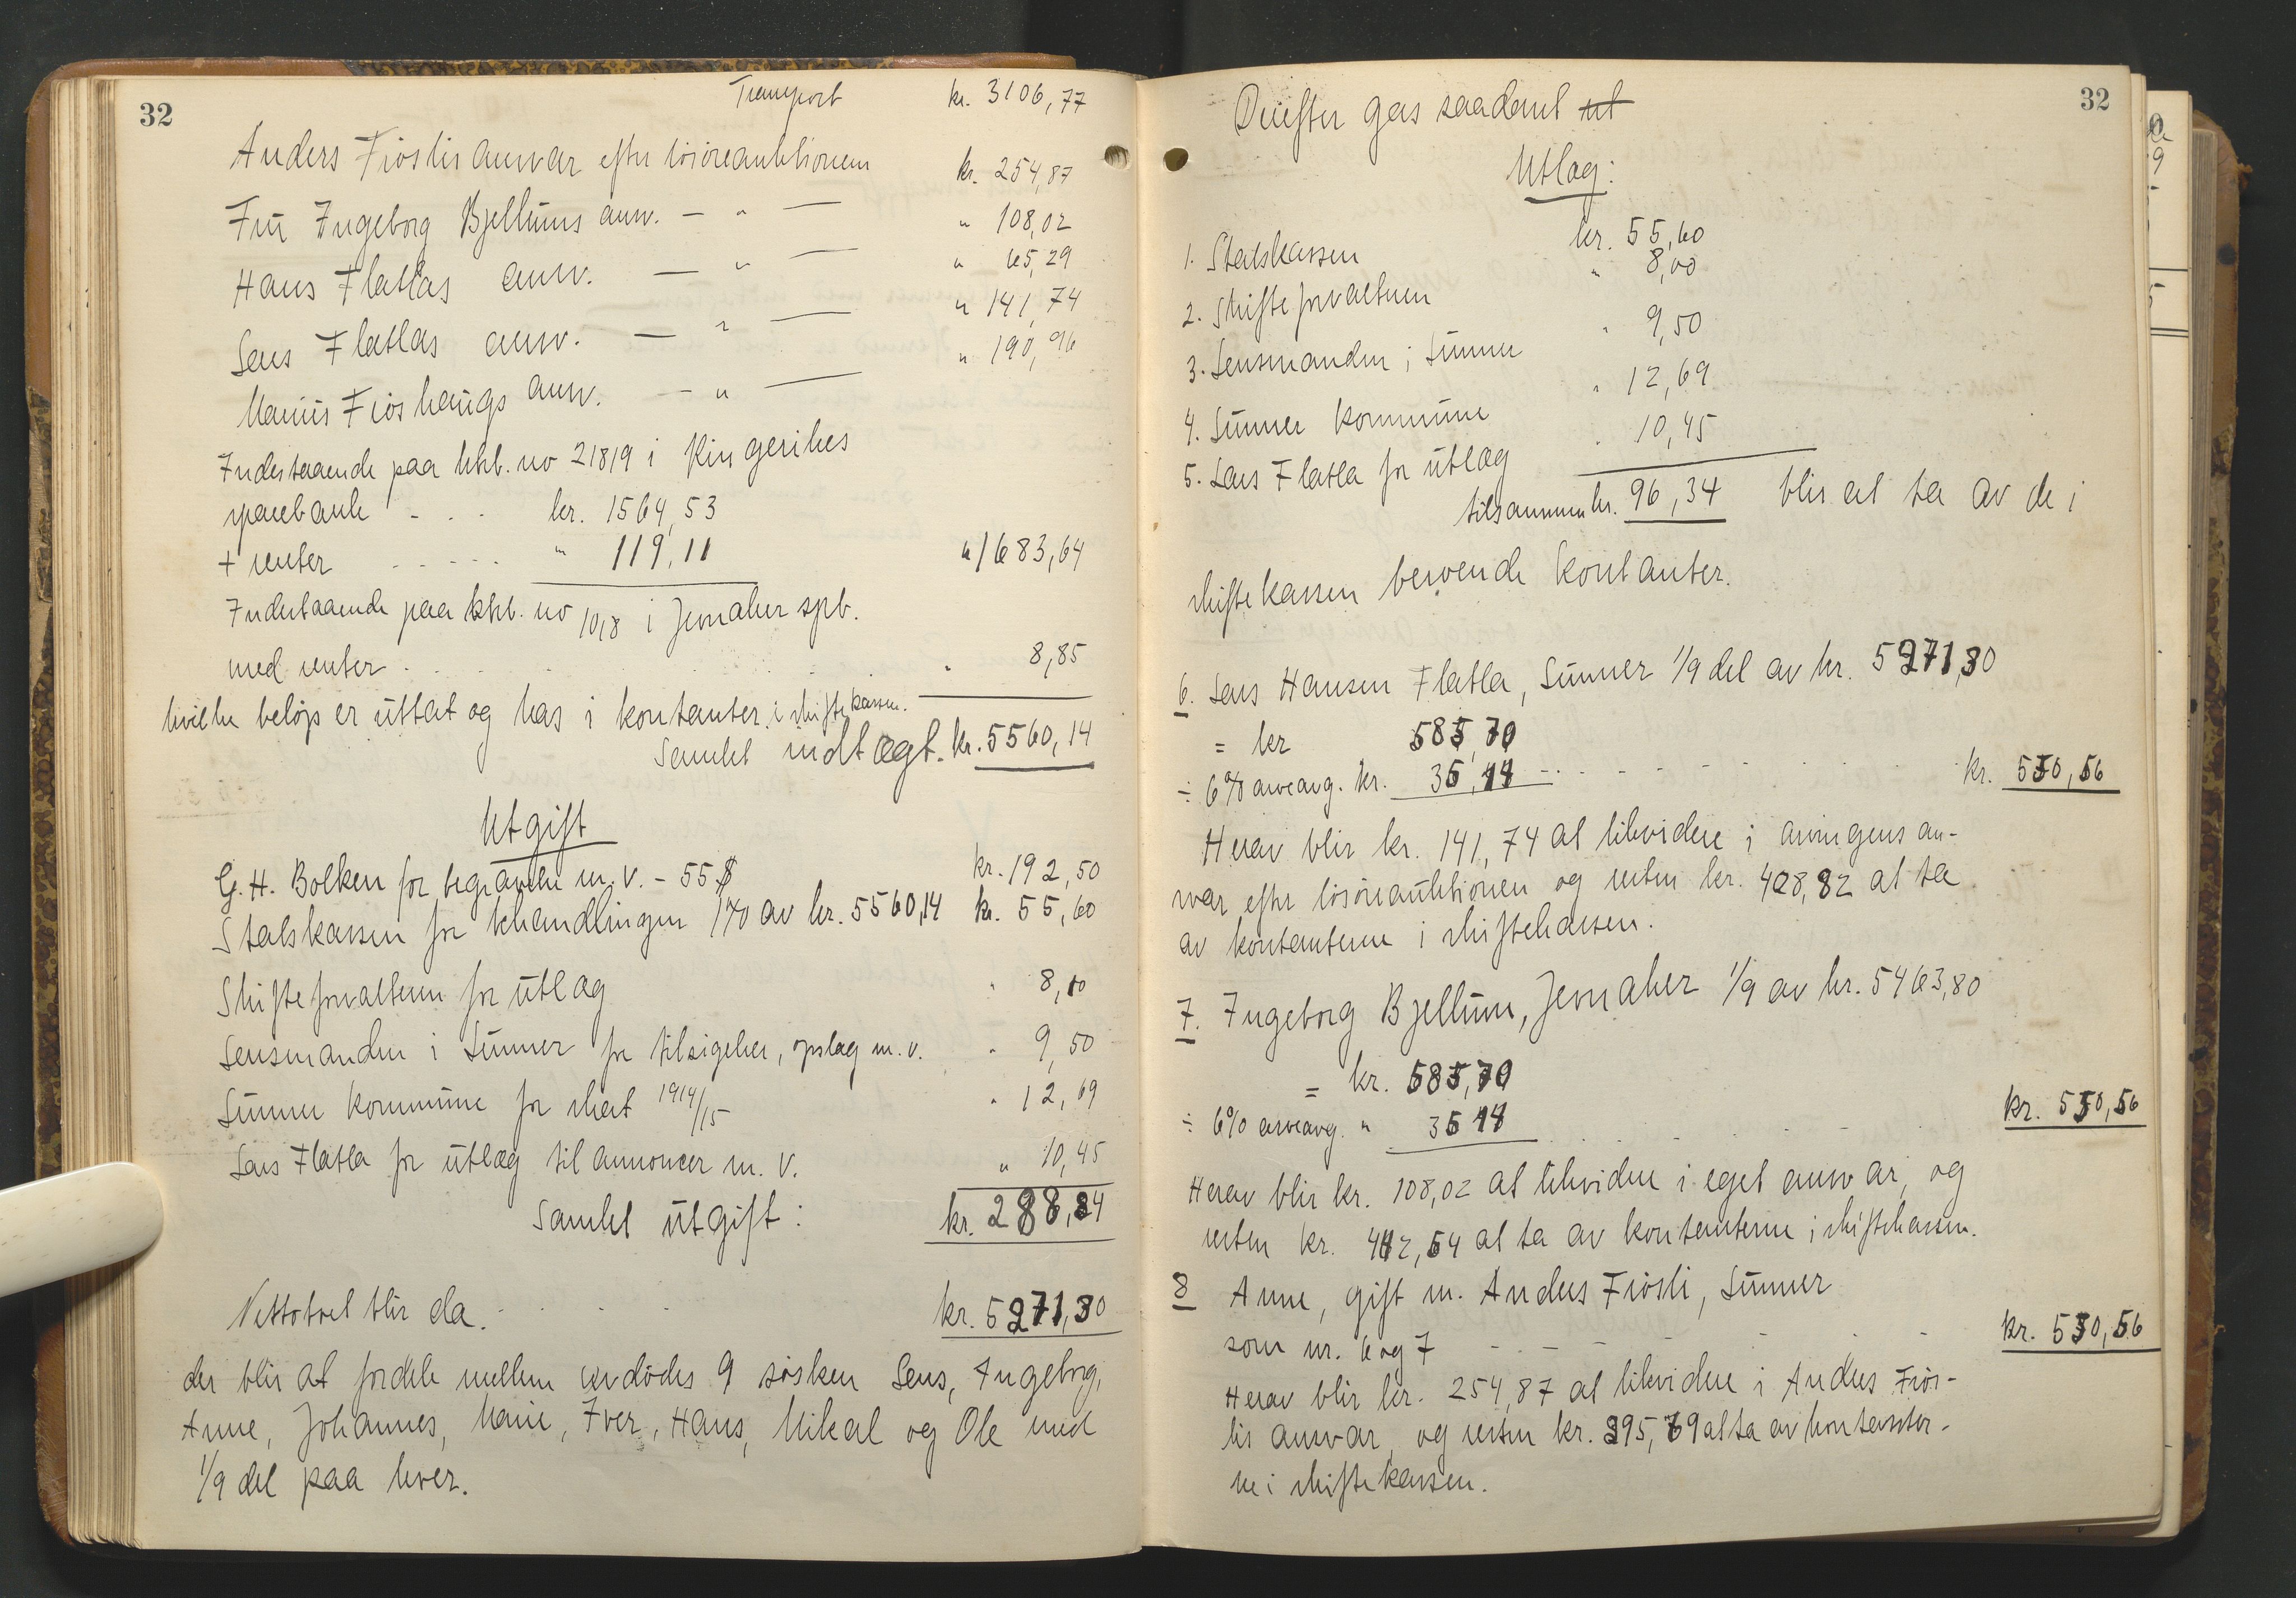 32
Transport kr. 3106,77
Anders Fiøslis ansvar efter løsøreauktionen kr. 254,87
Fru Ingeborg Bjellums ansv. — " — " 108,02
Hans Flatlas ansv. — " — " 65,29
Lars Flatlas ansv. — " — " 141,74
Marius Fiøshaugs ansv. — " — " 190,96
Indestaaende paa ktrb. no 21819 i Ringerikes
sparebank - . . kr. 1564,53
+ renter . . . . . " 119,11 " 1683,64
Indestaaende paa ktrb. no 1018 i Jevnaker spb.
med renter . . . " 8,85
hvilke beløp er uttat og has i kontanter i skiftekassen.
Samlet indtægt. kr. 5560,14
Utgift
G. H. Bolken for begravelse m. v. - 55 $ kr. 192,50
Statskassen for behandlingen 1% av kr. 5560,14 kr. 55,60
Skifteforvalteren for utlæg " 8,10
Lensmanden i Lunner for tilsigelser, opslag m. v. " 9,50
Lunner kommune for skat 1914/15 " 12,69
Lars Flatla for utlæg til annoncer m. V. " 10,45
Samlet utgift : kr. 288,84
Nettoboet blir da . . . kr. 5271,30
der blir at fordele mellem avdødes 9 søsken Lars, Ingeborg,
Anne, Johannes, Marie, Iver, Hans, Mikal og Ole med
1/9 del paa hver.
32
Derefter gas saadant ut
Utlag:
1. Statskassen kr. 55,60
2. Skifteforvalteren " 8,00
3. Lensmanden i Lunner " 9,50
4. Lunner kommune " 12,69
5. Lars Flatla for utlæg " 10,45
tilsammen kr. 96,34 blir at ta av de i
skiftekassen beroende kontanter.
6. Lars Hansen Flatla, Lunner 1/9 del av kr. 5271,30
= kr 585,70
÷ 6% arveavg. kr. 35,14 - . . . kr. 550,56
Herav blir kr. 141,74 at likvidere i arvingens an-
svar efter løsøreauktionen og resten kr. 408,82 at ta
av kontanterne i skiftekassen.
7. Ingeborg Bjellum, Jevnaker 1/9 av kr. 5463,80
= kr. 585,70
÷ 6% arveavg. " 35 14 . . . kr. 550,56
Herav blir kr. 108,02 at likvidere i eget ansvar, og
resten kr. 442,54 at ta av kontanterne i skiftekassen.
8 Anne, gift m. Anders Fiøsli, Lunner
som nr. 6 og 7 - - - kr. 550,56
Herav blir kr. 254,87 at likvidere i Anders Fiøs-
lis ansvar og resten kr. 295,69 at ta av kontanter-
ne i skiftekassen.